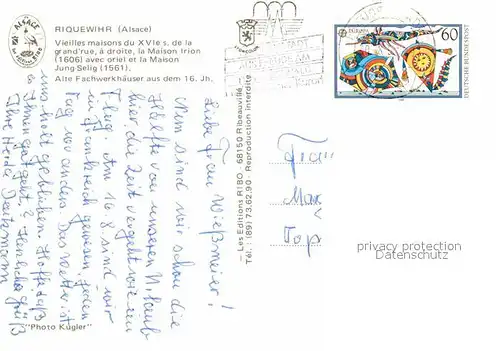 ALSACE
RIQUEWIHR (Alsace)
Vieilles maisons du XVIe s. de la
grand'rue, à droite, la Maison Irion
(1606) avec oriel et la Maison
Jung-Selig (1561).
Alte Fachwerkhäuser aus dem 16. Jh.
Liebe Frau Wießmeier!
Nun sind wir schon die
Hälfte von unseren Urlaub
hier, die Zeit vergeht wie im
Flug. Am 16.8 sind wir
in Frankreich gewesen, jeden
Tag wo anders. Das Wetter ist
uns hold geblieben. Hoffe daß
es Ihnen gut geht? Herzliche Grüß
Ihre Heide Deutzmann
"Photo Kugler"
— Les Editions RIBO - 68150 Ribeauvillé —
Tél.: (89) 73.62.90 Reproduction interdite
EUROPA
60
DEUTSCHE BUNDESPOST
Frau
Max
Top
privacy protection
Datenschutz